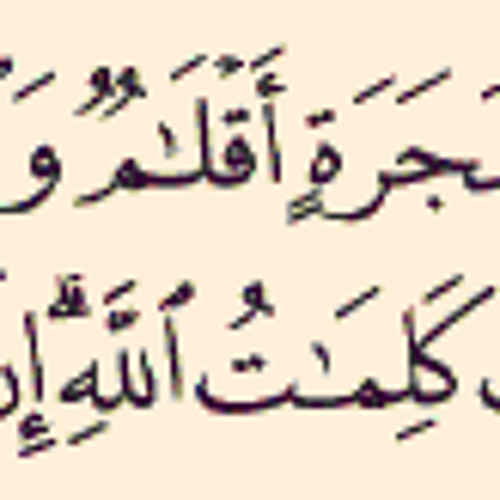 شَجَرَةٍ أَقْلَـٰمٌ وَ
كَلِمَـٰتُ ٱللَّهِ ۗ إِنَّ